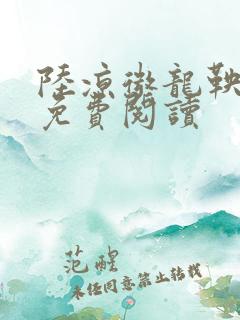 陸凉微龍鞅
免費閱讀
范醒
未经同意禁止转载